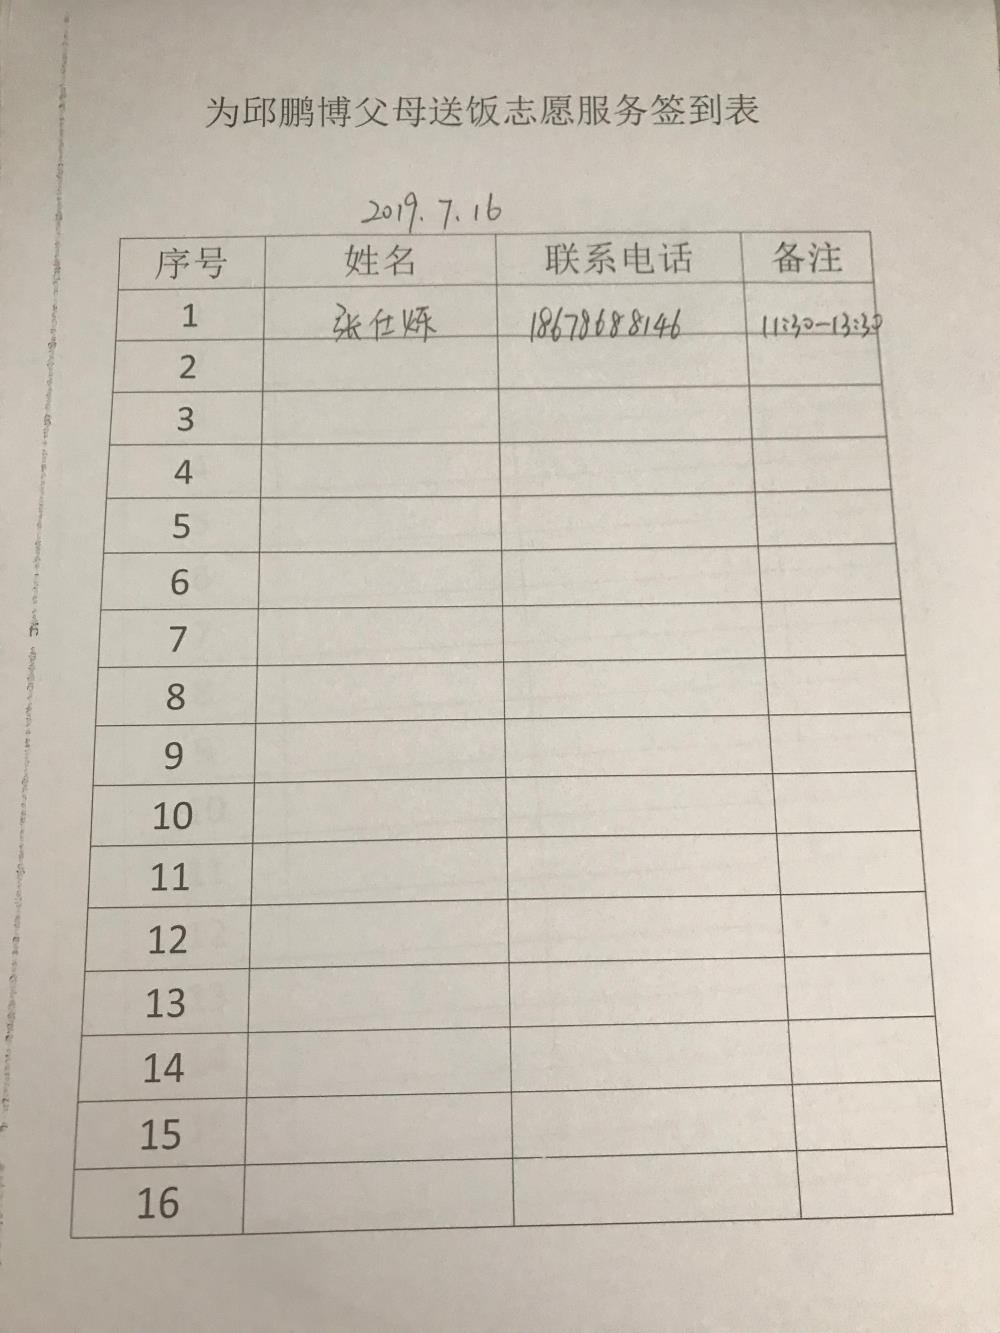 为邱鹏博父母送饭志愿服务签到表
2019.7.16
序号 姓名 联系电话 备注
1 张仕烁 18678688146 11:30-13:30
2
3
4
5
6
7
8
9
10
11
12
13
14
15
16